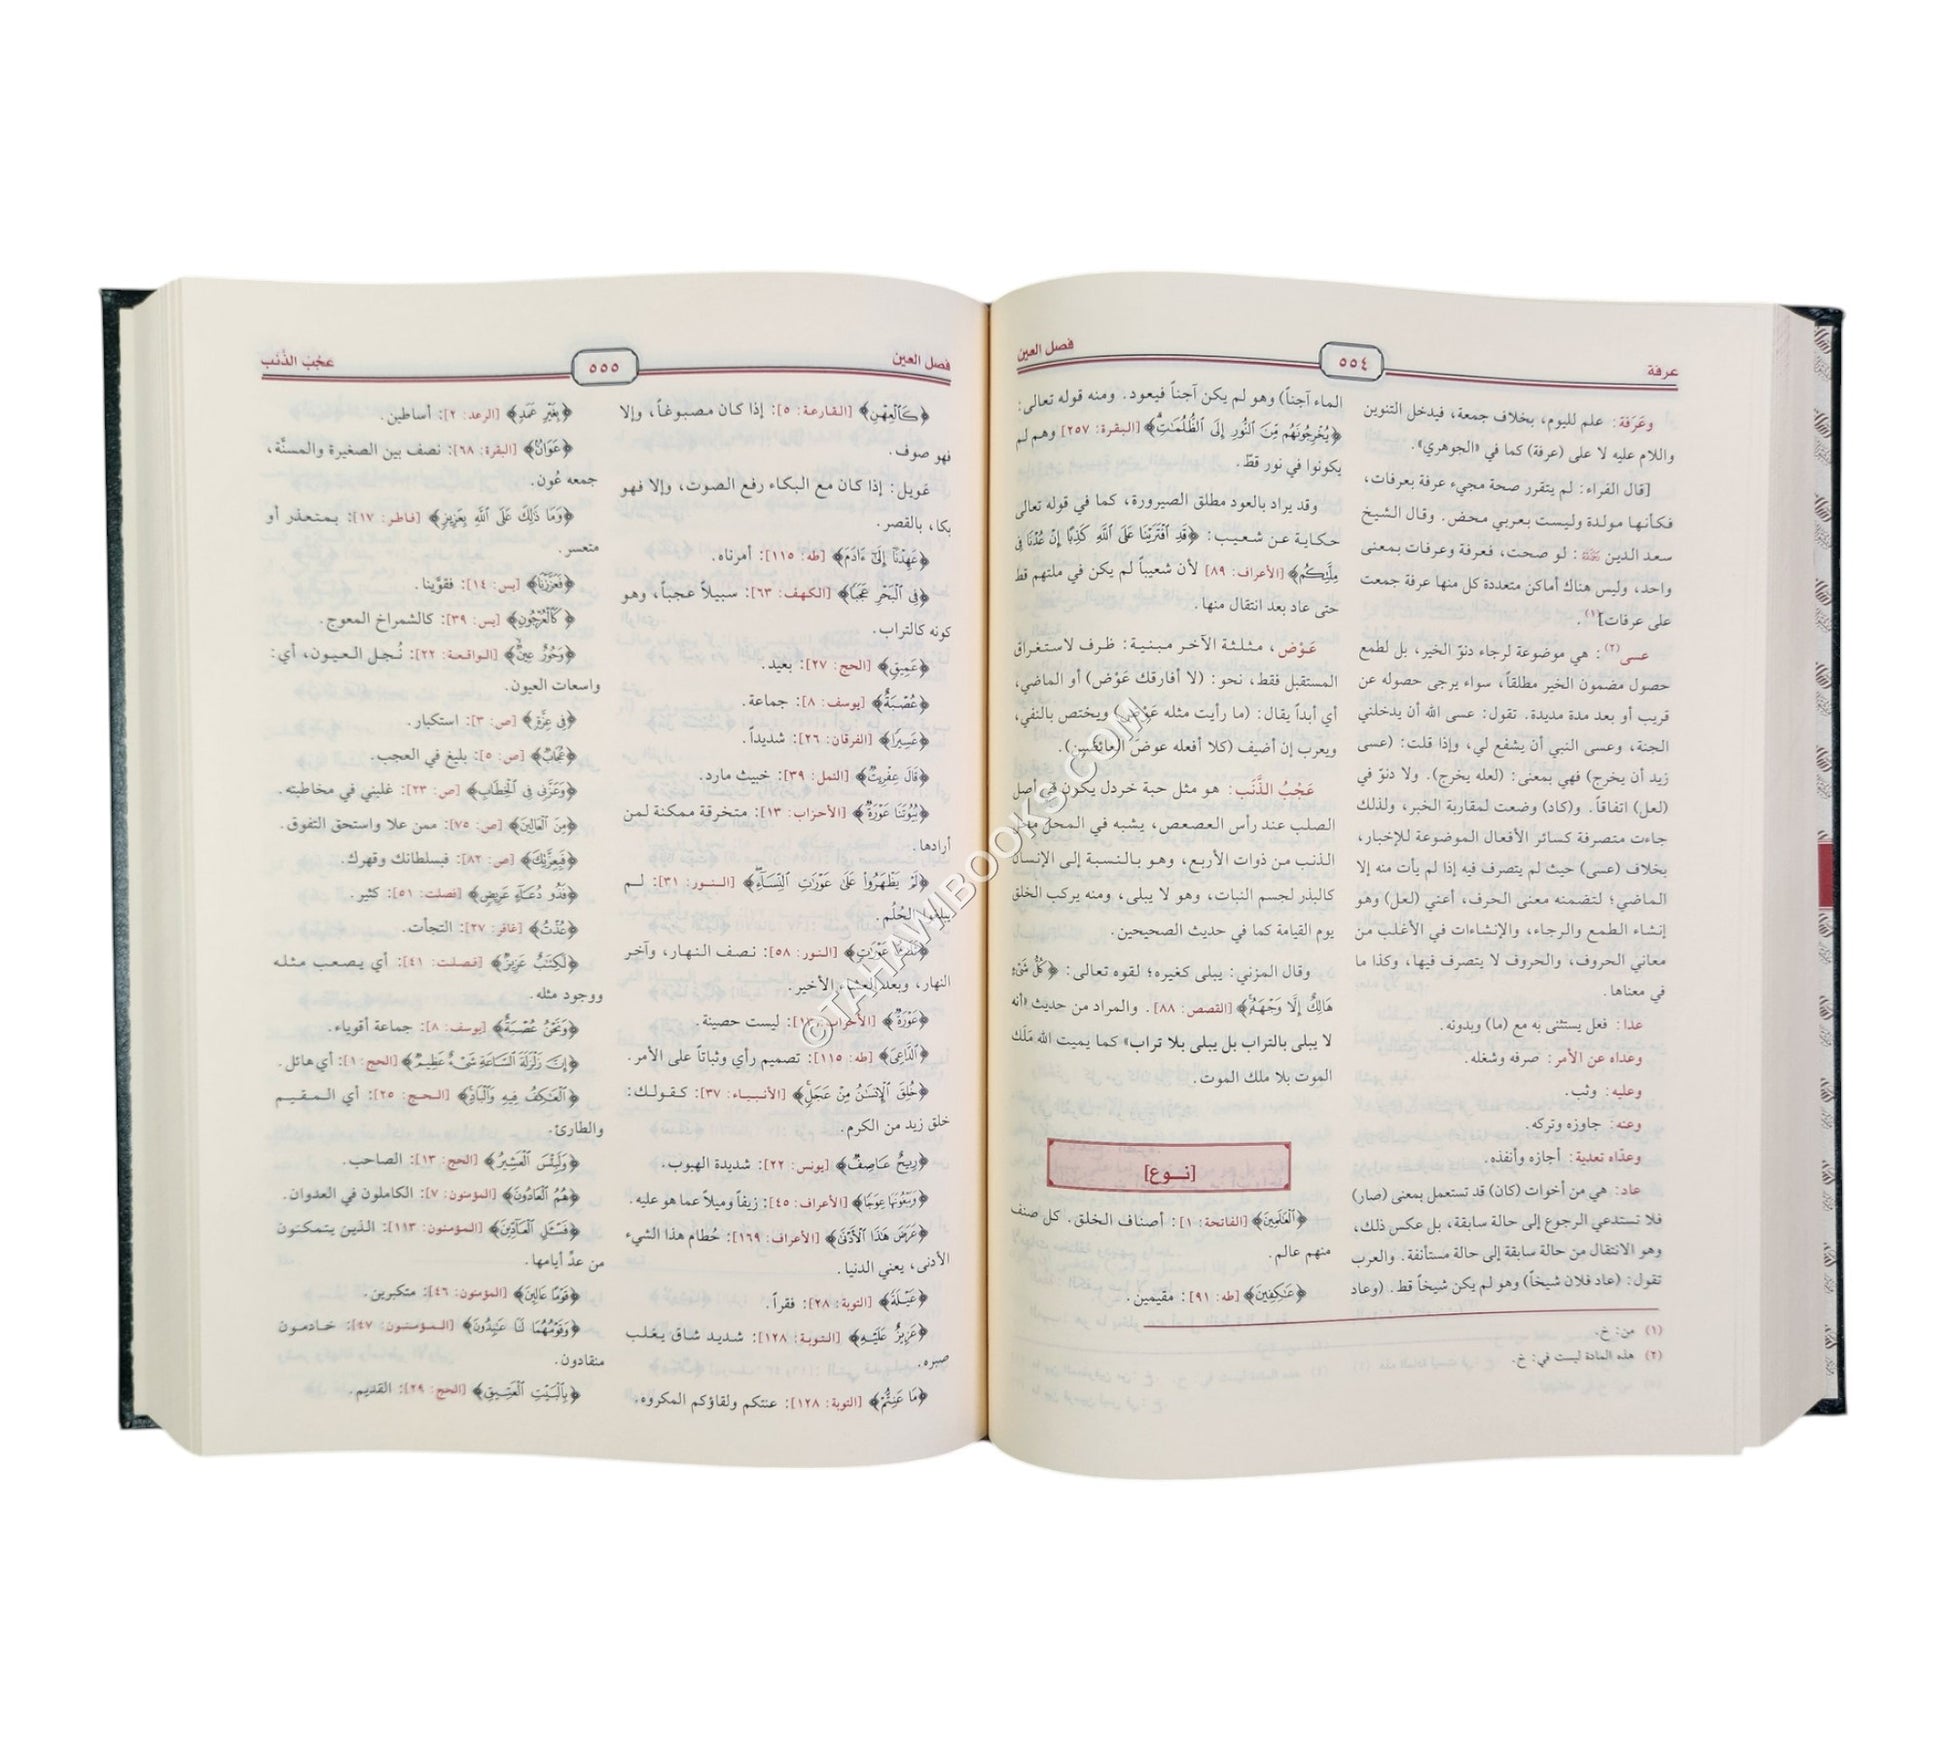 عرفة
٥٥٤
فصل العين
وعَرَفة: علم لليوم، بخلاف جمعة، فيدخل التنوين
واللام عليه لا على (عرفة) كما في «الجوهري».
[قال الفراء: لم يتقرر صحة مجيء عرفة بعرفات،
فكأنها مولدة وليست بعربي محض. وقال الشيخ
سعد الدين : لو صحت، فعرفة وعرفات بمعنى
واحد، وليس هناك أماكن متعددة كل منها عرفة جمعت
على عرفات](١).
عسى(٢): هي موضوعة لرجاء دنوّ الخبر، بل لطمع
حصول مضمون الخبر مطلقاً، سواء يرجى حصوله عن
قريب أو بعد مدة مديدة. تقول: عسى الله أن يدخلني
الجنة، وعسى النبي أن يشفع لي، وإذا قلت: (عسى
زيد أن يخرج) فهي بمعنى: (لعله يخرج). ولا دنوّ في
(لعل) اتفاقاً. و(كاد) وضعت لمقاربة الخبر، ولذلك
جاءت متصرفة كسائر الأفعال الموضوعة للإخبار،
بخلاف (عسى) حيث لم يتصرف فيه إذا لم يأت منه إلا
الماضي؛ لتضمنه معنى الحرف، أعني (لعل) وهو
إنشاء الطمع والرجاء، والإنشاءات في الأغلب من
معاني الحروف، والحروف لا يتصرف فيها، وكذا ما
في معناها.
عدا: فعل يستثنى به مع (ما) وبدونه.
وعداه عن الأمر: صرفه وشغله.
وعليه: وثب.
وعنه: جاوزه وتركه.
وعدّاه تعدية: أجازه وأنفذه.
عاد: هي من أخوات (كان) قد تستعمل بمعنى (صار)
فلا تستدعي الرجوع إلى حالة سابقة، بل عكس ذلك،
وهو الانتقال من حالة سابقة إلى حالة مستأنفة. والعرب
تقول: (عاد فلان شيخاً) وهو لم يكن شيخاً قط. (وعاد
الماء آجناً) وهو لم يكن آجناً فيعود. ومنه قوله تعالى:
﴿يُخْرِجُونَهُم مِّنَ النُّورِ إِلَى الظُّلُمَاتِ﴾ [البقرة: ٢٥٧] وهم لم
يكونوا في نور قطّ.
وقد يراد بالعود مطلق الصيرورة، كما في قوله تعالى
حكاية عن شعيب: ﴿قَدِ افْتَرَيْنَا عَلَى اللَّهِ كَذِبًا إِنْ عُدْنَا فِي
مِلَّتِكُم﴾ [الأعراف: ٨٩] لأن شعيباً لم يكن في ملتهم قط
حتى عاد بعد انتقال منها.
عَوْض، مثلثة الآخر مبنية: ظرف لاستغراق
المستقبل فقط، نحو: (لا أفارقك عَوْض) أو الماضي،
أي أبداً يقال: (ما رأيت مثله عَوْض) ويختص بالنفي،
ويعرب إن أضيف (كلا أفعله عوضَ العائضين).
عَجْبُ الذَّنَب: هو مثل حبة خردل يكون في أصل
الصلب عند رأس العصعص، يشبه في المحل محل
الذنب من ذوات الأربع، وهو بالنسبة إلى الإنسان
كالبذر لجسم النبات، وهو لا يبلى، ومنه يركب الخلق
يوم القيامة كما في حديث الصحيحين.
وقال المزني: يبلى كغيره؛ لقوه تعالى: ﴿كُلُّ شَيْءٍ
هَالِكٌ إِلَّا وَجْهَهُ﴾ [القصص: ٨٨]. والمراد من حديث «أنه
لا يبلى بالتراب بل يبلى بلا تراب» كما يميت الله مَلَك
الموت بلا ملك الموت.
[نوع]
﴿الْعَالَمِينَ﴾ [الفاتحة: ١]: أصناف الخلق. كل صنف
منهم عالم.
﴿عَاكِفِينَ﴾ [طه: ٩١]: مقيمين.
(١) من: خ.
(٢) هذه المادة ليست في: خ.
فصل العين
٥٥٥
عجْبُ الذَّنَب
﴿كَالْعِهْنِ﴾ [القارعة: ٥]: إذا كان مصبوغاً، وإلا
فهو صوف.
عَويل: إذا كان مع البكاء رفع الصوت، وإلا فهو
بكا، بالقصر.
﴿عَهِدْنَا إِلَى آدَمَ﴾ [طه: ١١٥]: أمرناه.
﴿فِي الْبَحْرِ عَجَبًا﴾ [الكهف: ٦٣]: سبيلاً عجباً، وهو
كونه كالتراب.
﴿عَمِيقٍ﴾ [الحج: ٢٧]: بعيد.
﴿عُصْبَةٌ﴾ [يوسف: ٨]: جماعة.
﴿عَسِيرًا﴾ [الفرقان: ٢٦]: شديداً.
﴿قَالَ عِفْرِيتٌ﴾ [النمل: ٣٩]: خبيث مارد.
﴿بُيُوتَنَا عَوْرَةٌ﴾ [الأحزاب: ١٣]: متخرقة ممكنة لمن
أرادها.
﴿لَمْ يَظْهَرُوا عَلَى عَوْرَاتِ النِّسَاءِ﴾ [النور: ٣١]: لم
يبلغوا الحُلُم.
﴿ثَلَاثُ عَوْرَاتٍ﴾ [النور: ٥٨]: نصف النهار، وآخر
النهار، وبعد العشاء الأخير.
﴿عَوْرَةٌ﴾ [الأحزاب: ١٣]: ليست حصينة.
[طه: ١١٥]: تصميم رأي وثباتاً على الأمر.
﴿خُلِقَ الْإِنسَانُ مِنْ عَجَلٍ﴾ [الأنبياء: ٣٧]: كقولك:
خلق زيد من الكرم.
﴿رِيحٌ عَاصِفٌ﴾ [يونس: ٢٢]: شديدة الهبوب.
﴿وَيَبْغُونَهَا عِوَجًا﴾ [الأعراف: ٤٥]: زيفاً وميلاً عما هو عليه.
﴿عَرَضَ هَٰذَا الْأَدْنَى﴾ [الأعراف: ١٦٩]: حُطام هذا الشيء
الأدنى، يعني الدنيا.
﴿عَيْلَةً﴾ [التوبة: ٢٨]: فقراً.
﴿عَزِيزٌ عَلَيْهِ﴾ [التوبة: ١٢٨]: شديد شاق يغلب
صبره.
﴿مَا عَنِتُّمْ﴾ [التوبة: ١٢٨]: عنتكم ولقاؤكم المكروه.
﴿بِغَيْرِ عَمَدٍ﴾ [الرعد: ٢]: أساطين.
﴿عَوَانٌ﴾ [البقرة: ٦٨]: نصف بين الصغيرة والمسنَّة،
جمعه عُون.
﴿وَمَا ذَٰلِكَ عَلَى اللَّهِ بِعَزِيزٍ﴾ [فاطر: ١٧]: بمتعذر أو
متعسر.
﴿فَعَزَّزْنَا﴾ [يس: ١٤]: فقوَّينا.
﴿كَالْعُرْجُونِ﴾ [يس: ٣٩]: كالشمراخ المعوج.
﴿وَحُورٌ عِينٌ﴾ [الواقعة: ٢٢]: نُجل العيون، أي:
واسعات العيون.
﴿فِي عِزَّةٍ﴾ [ص: ٢]: استكبار.
﴿عُجَابٌ﴾ [ص: ٥]: بليغ في العجب.
﴿وَعَزَّنِي فِي الْخِطَابِ﴾ [ص: ٢٣]: غلبني في مخاطبته.
﴿مِنَ الْعَالِينَ﴾ [ص: ٧٥]: ممن علا واستحق التفوق.
﴿فَبِعِزَّتِكَ﴾ [ص: ٨٢]: فبسلطانك وقهرك.
﴿فَذُو دُعَاءٍ عَرِيضٍ﴾ [فصلت: ٥١]: كثير.
﴿عُذْتُ﴾ [غافر: ٢٧]: التجأت.
﴿لَكِتَابٌ عَزِيزٌ﴾ [فصلت: ٤١]: أي يصعب مثله
ووجود مثله.
﴿وَنَحْنُ عُصْبَةٌ﴾ [يوسف: ٨]: جماعة أقوياء.
﴿إِنَّ زَلْزَلَةَ السَّاعَةِ شَيْءٌ عَظِيمٌ﴾ [الحج: ١]: أي هائل.
﴿الْعَاكِفُ فِيهِ وَالْبَادِ﴾ [الحج: ٢٥]: أي المقيم
والطارئ.
﴿وَلَبِئْسَ الْعَشِيرُ﴾ [الحج: ١٣]: الصاحب.
﴿هُمُ الْعَادُونَ﴾ [المؤمنون: ٧]: الكاملون في العدوان.
﴿فَسْئَلِ الْعَادِّينَ﴾ [المؤمنون: ١١٣]: الذين يتمكنون
من عدِّ أيامها.
﴿قَوْمًا عَالِينَ﴾ [المؤمنون: ٤٦]: متكبرين.
﴿وَقَوْمُهُمَا لَنَا عَابِدُونَ﴾ [المؤمنون: ٤٧]: خادمون
منقادون.
﴿بِالْبَيْتِ الْعَتِيقِ﴾ [الحج: ٢٩]: القديم.
©TAHAWIBOOKS.COM